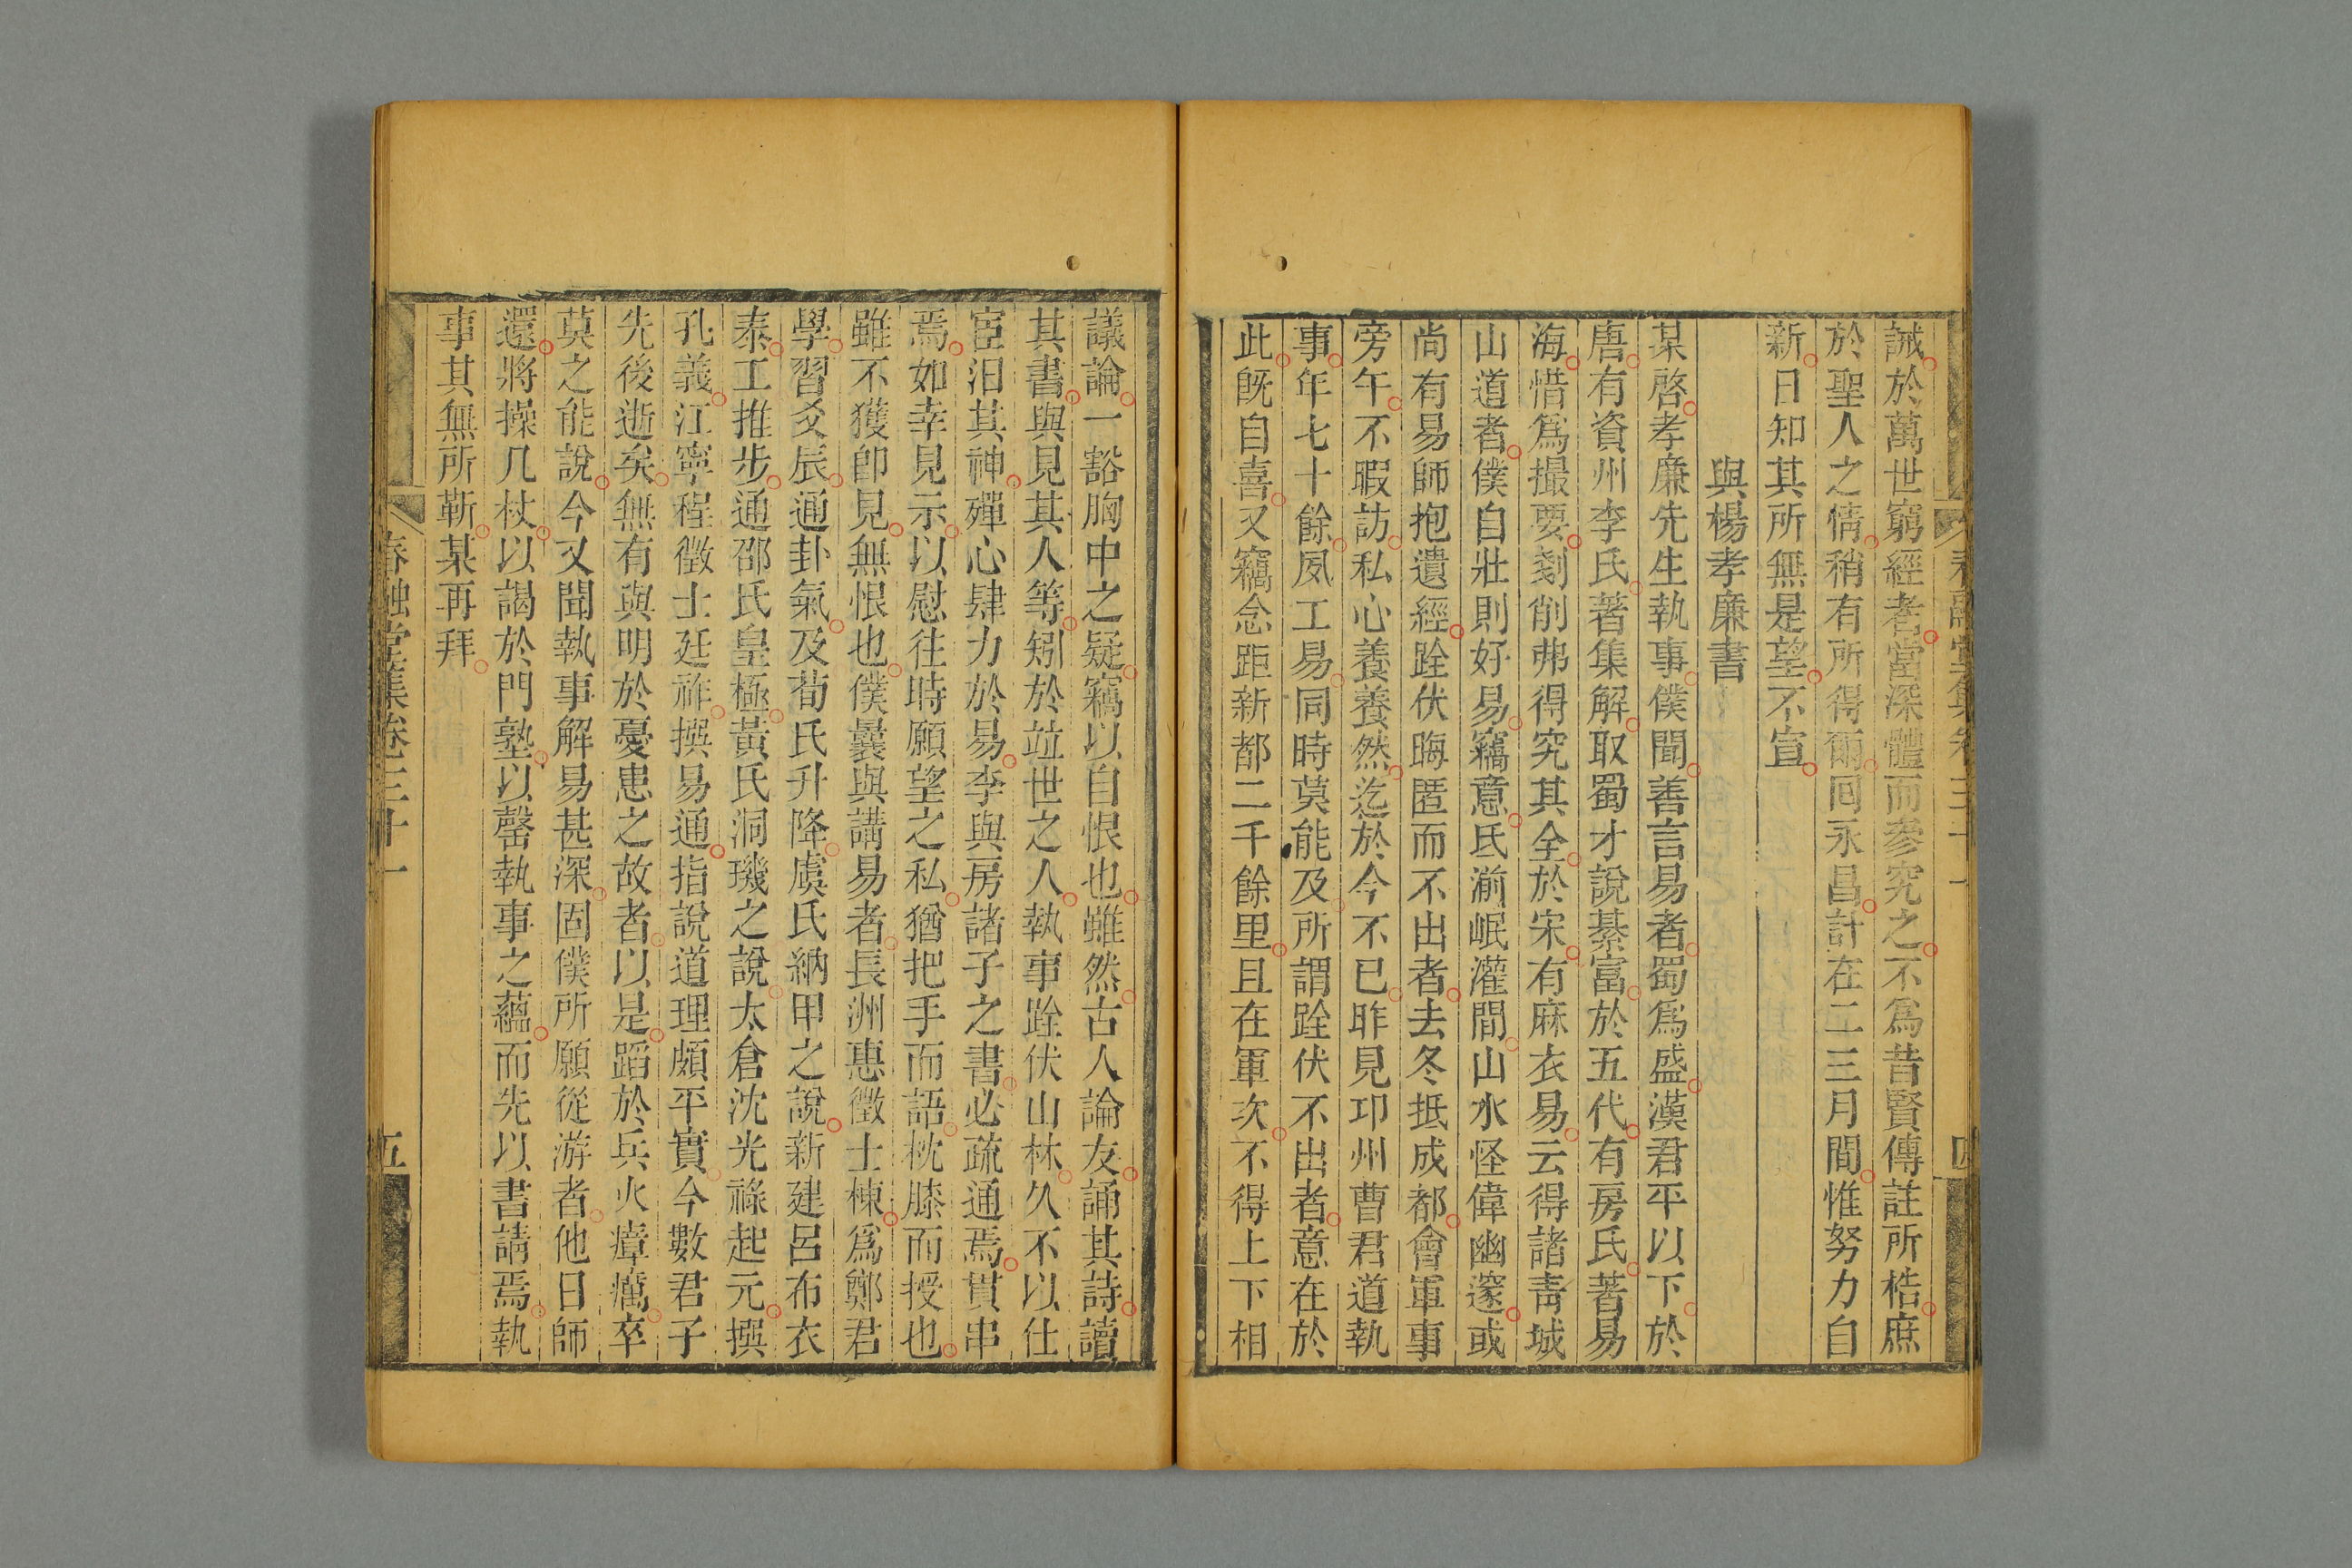 誡於萬世窮經者當深體而參究之不爲昔賢傳註所梏庶
於聖人之情稍有所得爾囘永昌計在二三月間惟努力自
新日知其所無是望不宣
與楊孝廉書
某啓孝廉先生執事僕聞善言易者蜀爲盛漢君平以下於
唐有資州李氏著集解取蜀才說綦富於五代有房氏著易
海惜爲撮要剗削弗得究其全於宋有麻衣易云得諸靑城
山道者僕自壯則好易竊意氐湔岷灌間山水怪偉幽邃或
尚有易師抱遺經跧伏晦匿而不出者去冬抵成都會軍事
旁午不暇訪私心養養然迄於今不已昨見邛州曹君道執
事年七十餘夙工易同時莫能及所謂跧伏不出者意在於
此旣自喜又竊念距新都二千餘里且在軍次不得上下相
春融堂集卷三十一
四
議論一豁胸中之疑竊以自恨也雖然古人論友誦其詩讀
其書與見其人等矧於竝世之人執事跧伏山林久不以仕
宦汨其神殫心肆力於易李與房諸子之書必疏通焉貫串
焉如幸見示以慰往時願望之私猶把手而語枕膝而授也
雖不獲卽見無恨也僕曩與講易者長洲惠徵士棟爲鄭君
學習爻辰通卦氣及荀氏升降虞氏納甲之說新建呂布衣
泰工推步通邵氏皇極黃氏洞璣之說太倉沈光祿起元撰
孔義江寧程徵士廷祚撰易通指說道理頗平實今數君子
先後逝矣無有與明於憂患之故者以是蹈於兵火瘴癘卒
莫之能說今又聞執事解易甚深固僕所願從游者他日師
還將操几杖以謁於門塾以罄執事之蘊而先以書請焉執
事其無所靳某再拜
春融堂集卷三十一
五